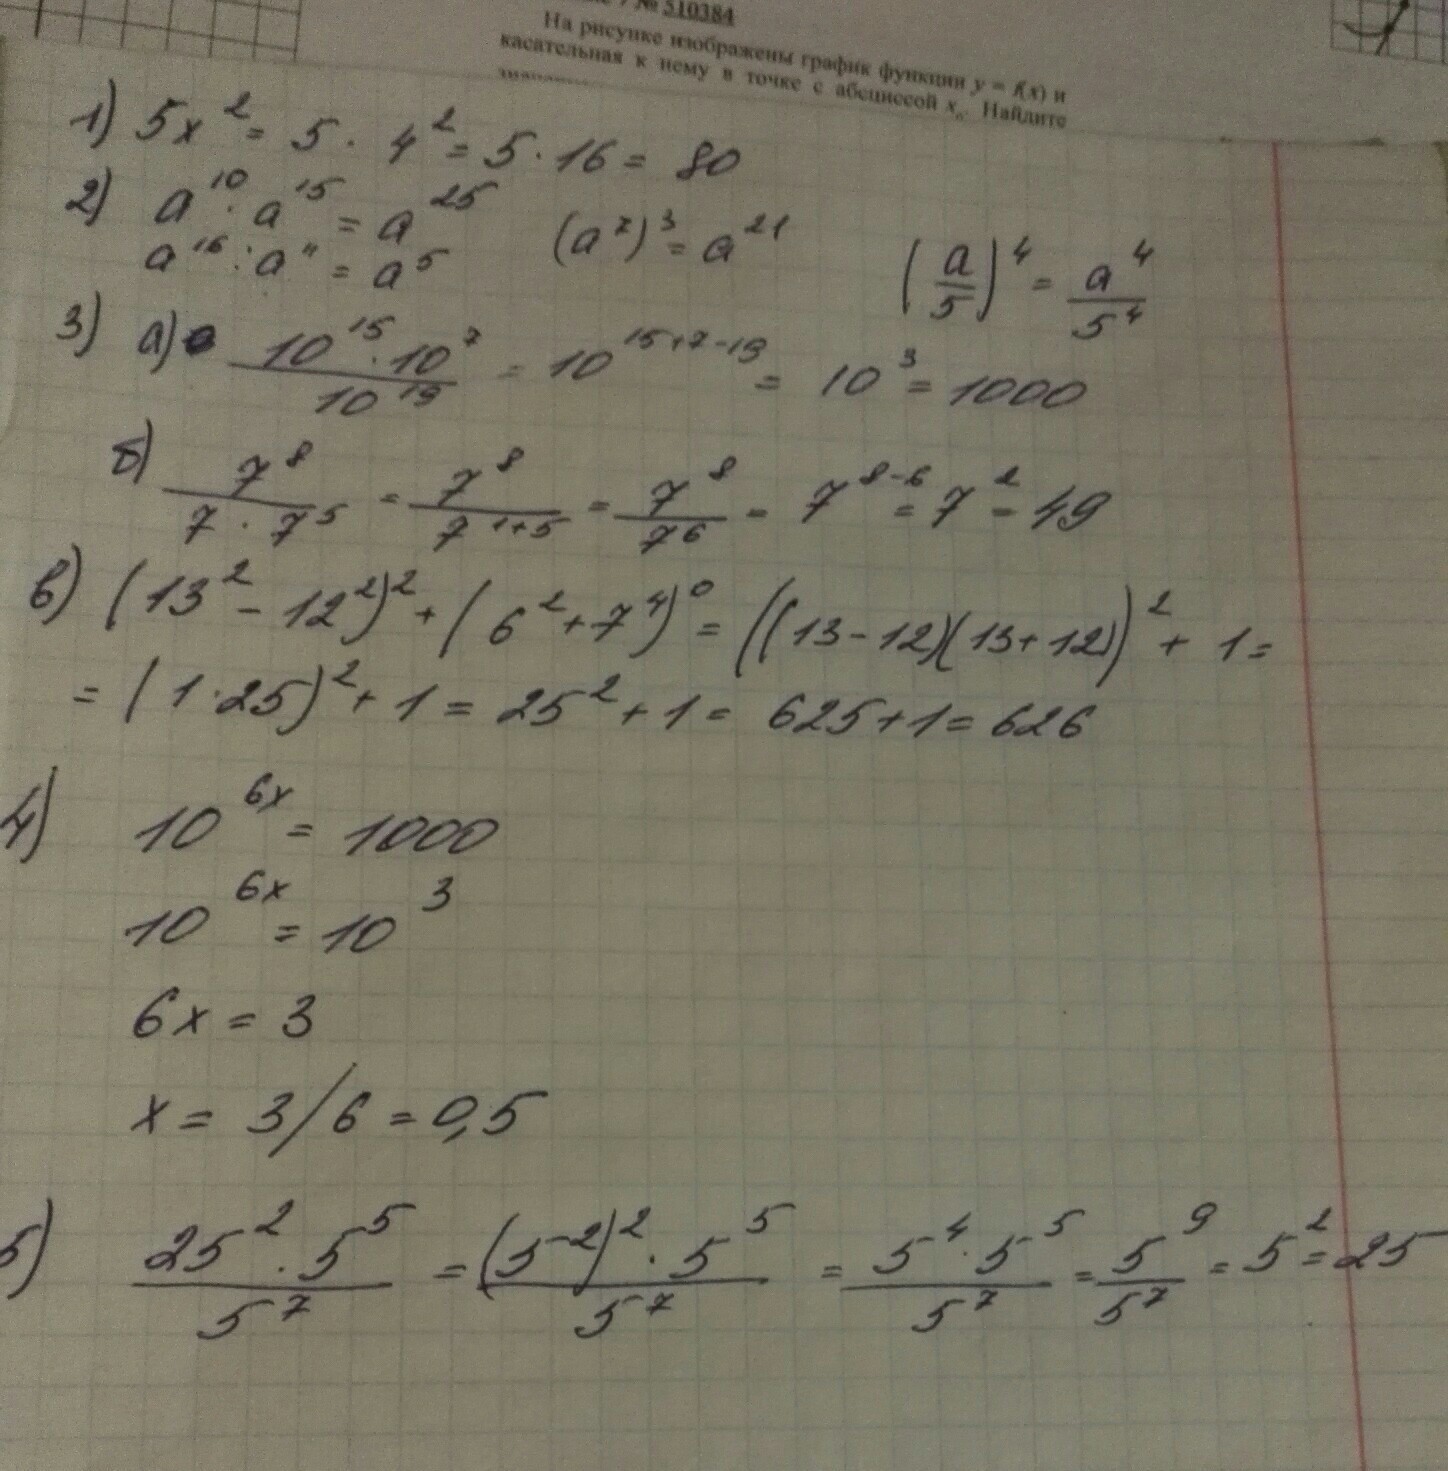 № 510384
На рисунке изображены график функции y = f(x) и
касательная к нему в точке с абсциссой x₀. Найдите
1) 5x² = 5 · 4² = 5 · 16 = 80
2) a¹⁰ · a¹⁵ = a²⁵ (a⁷)³ = a²¹ (a/5)⁴ = a⁴/5⁴
a¹⁶ : a¹¹ = a⁵
3) а) 10¹⁵ · 10⁷ / 10¹⁹ = 10¹⁵⁺⁷⁻¹⁹ = 10³ = 1000
б) 7⁸ / 7 · 7⁵ = 7⁸ / 7¹⁺⁵ = 7⁸ / 7⁶ = 7⁸⁻⁶ = 7² = 49
в) (13² - 12²)² + (6² + 7⁴)⁰ = ((13 - 12)(13 + 12))² + 1 =
= (1 · 25)² + 1 = 25² + 1 = 625 + 1 = 626
4) 10⁶ˣ = 1000
10⁶ˣ = 10³
6x = 3
x = 3/6 = 0,5
5) 25² · 5⁵ / 5⁷ = (5²)² · 5⁵ / 5⁷ = 5⁴ · 5⁵ / 5⁷ = 5⁹ / 5⁷ = 5² = 25